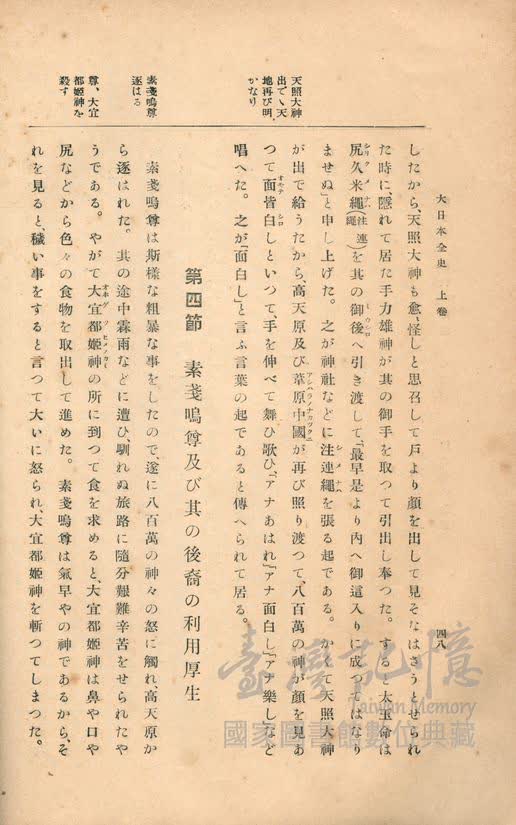 大日本全史　上卷
四八
天照大神
出でゝ天
地再び明
かなり
素戔嗚尊
逐はる
尊、大宜
都姬神を
殺す
したから、天照大神も愈〻怪しと思召して戶より顏を出して見そなはさうとせられ
た時に、隱れて居た手力雄神が其の御手を取つて引出し奉つた。すると太玉命は
尻久米繩(注連繩)を其の御後へ引き渡して『最早是より內へ御這入りに成つてはなり
ませぬ』と申し上げた。之が神社などに注連繩を張る起である。かくて天照大神
が出で給うたから、高天原及び葦原中國が再び照り渡つて、八百萬の神が顏を見あ
つて面皆白しといつて、手を伸べて舞ひ歌ひ、『アナあはれ』『アナ面白し』『アナ樂し』など
唱へた。之が『面白し』と言ふ言葉の起であると傳へられて居る。
第四節　素戔嗚尊及び其の後裔の利用厚生
素戔嗚尊は斯樣な粗暴な事をしたので、遂に八百萬の神々の怒に觸れ、高天原か
ら逐はれた。其の途中霖雨などに遭ひ、馴れぬ旅路に隨分艱難辛苦をせられたや
うである。やがて大宜都姬神の所に到つて食を求めると、大宜都姬神は鼻や口や
尻などから色々の食物を取出して進めた。素戔嗚尊は氣早やの神であるから、そ
れを見ると、穢い事をすると言つて大いに怒られ、大宜都姬神を斬つてしまつた。
臺灣記憶
Taiwan Memory
國家圖書館數位典藏